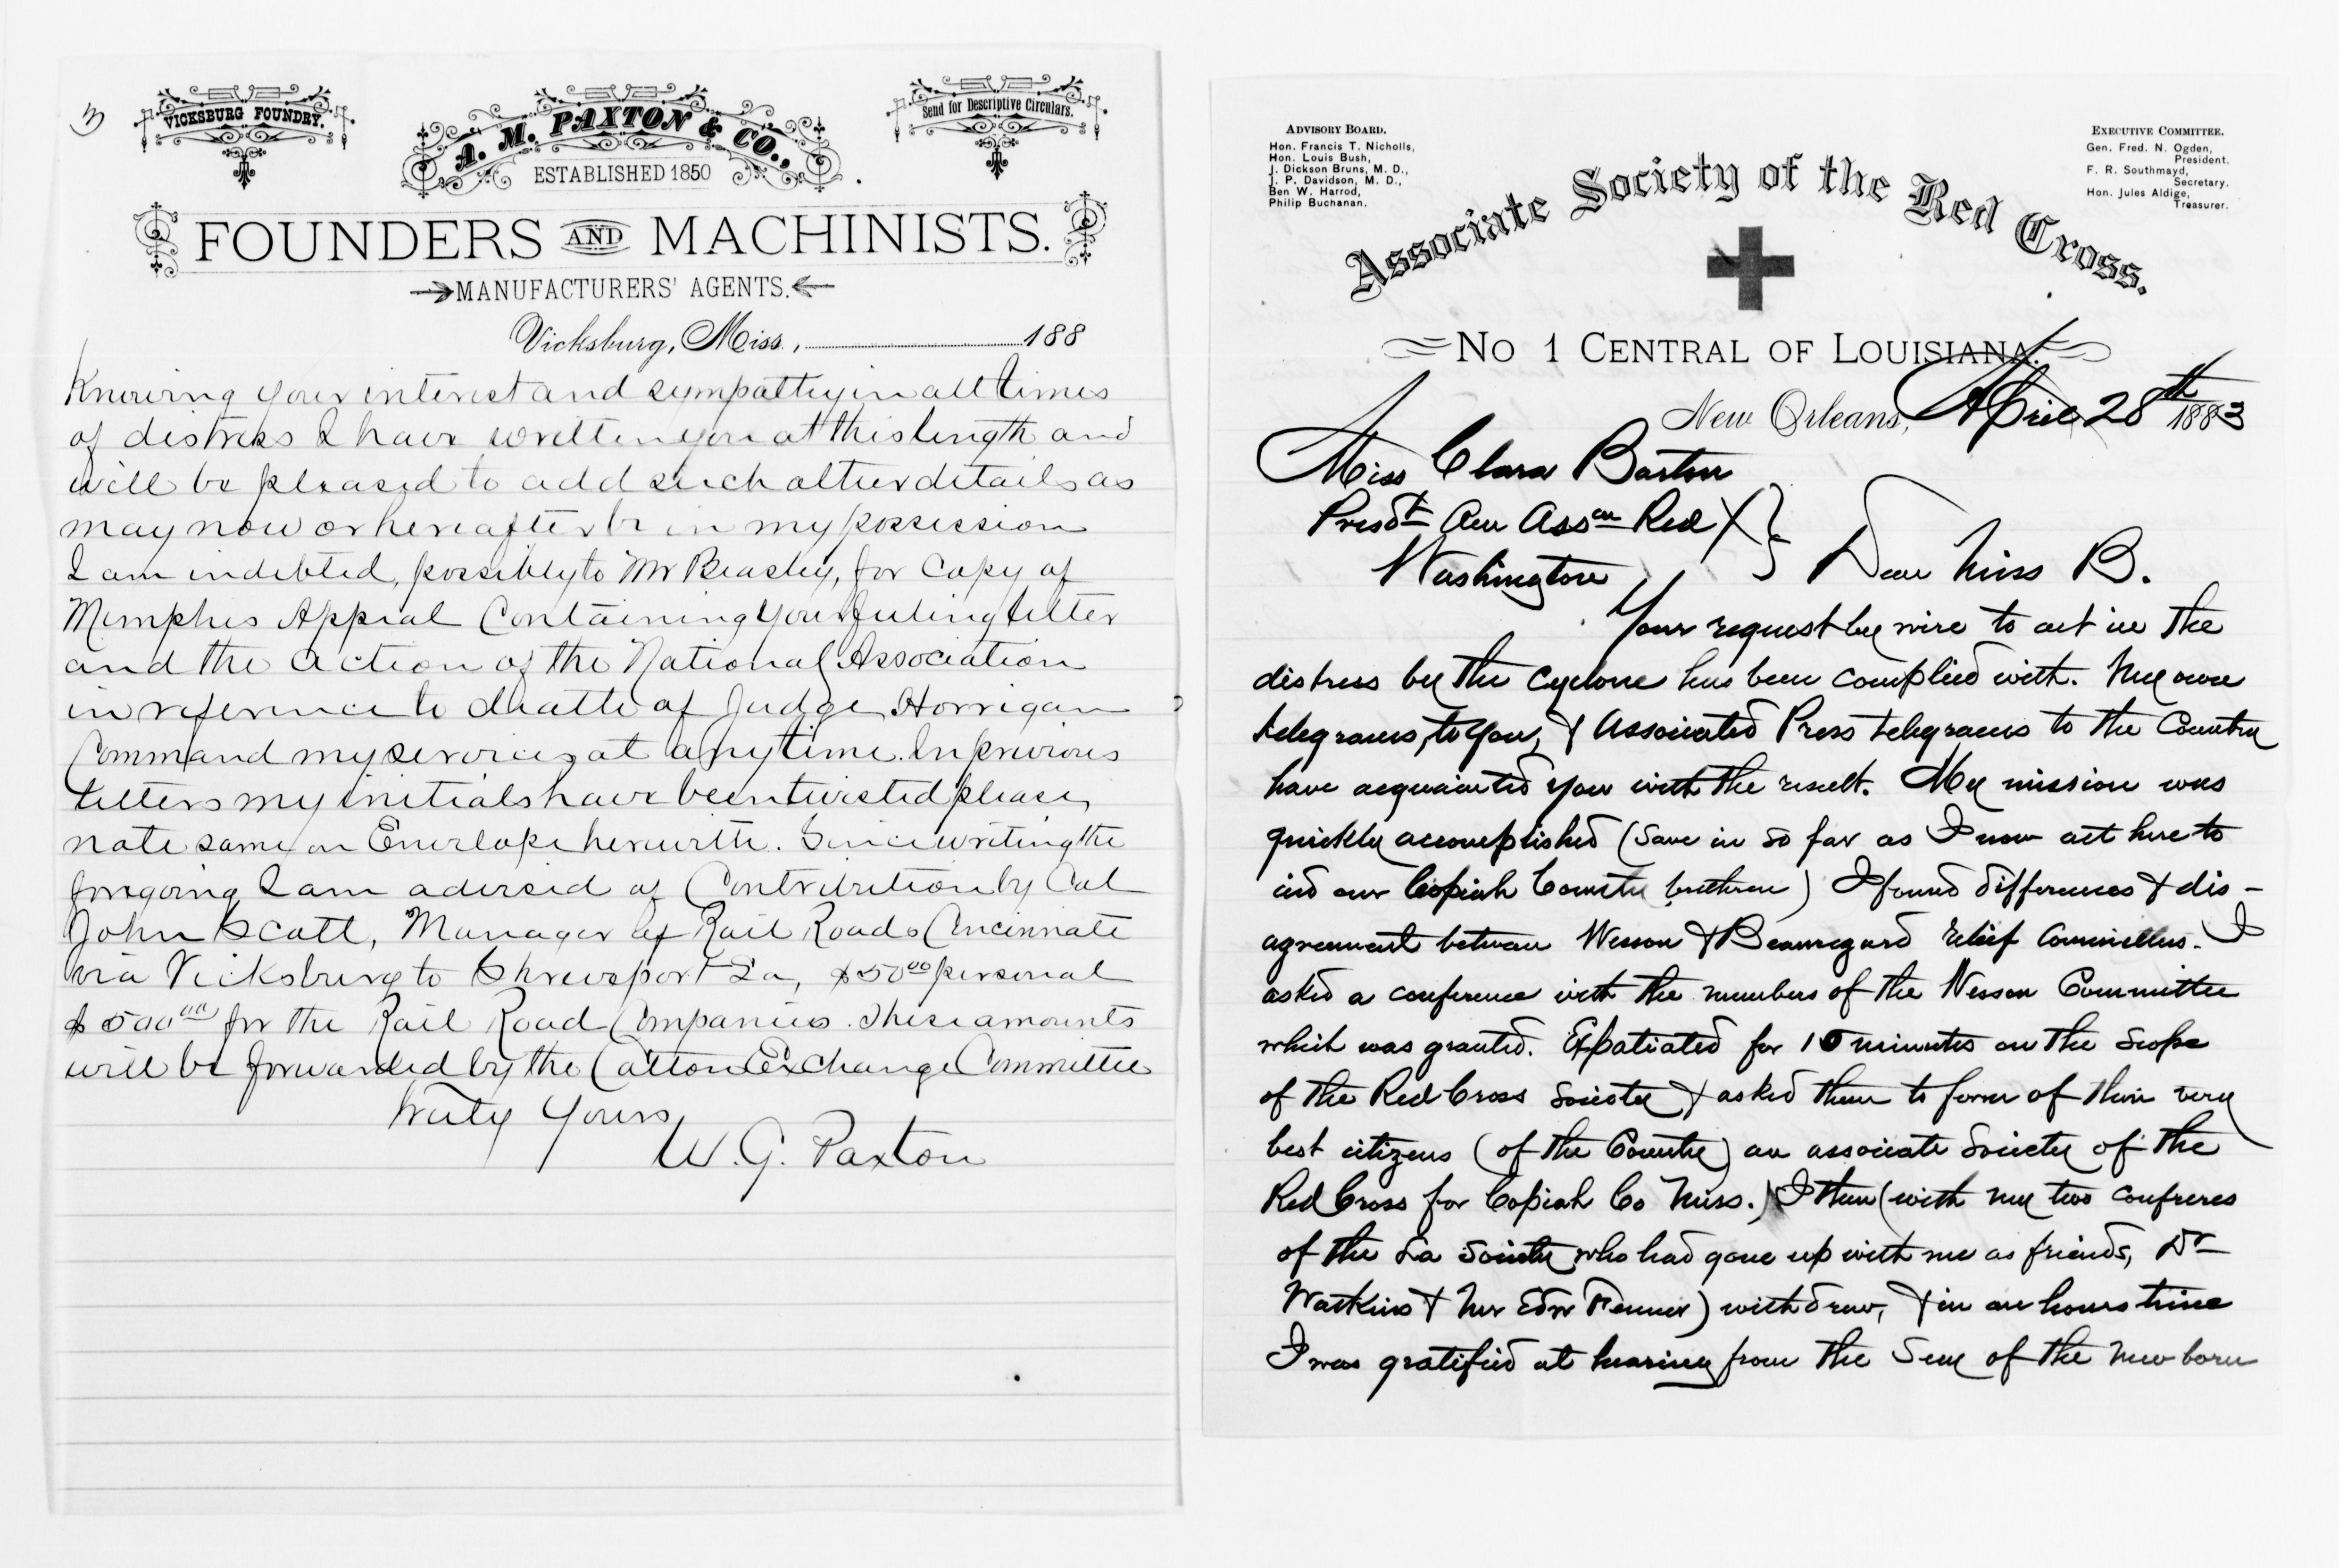 3
VICKSBURG FOUNDRY.
A. M. PAXTON & CO.,
ESTABLISHED 1850
Send for Descriptive Circulars.
FOUNDERS AND MACHINISTS.
MANUFACTURERS' AGENTS.
Vicksburg, Miss., 188
Knowing your interest and sympathy in all times
of distress I have written you at this length and
will be pleased to add such other details as
may now or hereafter be in my possession
I am indebted, possibly to Mr Beasley, for Copy of
Memphis Appeal Containing your feeling letter
and the action of the National Association
in reference to death of Judge Horrigan
Command my services at any time. In previous
letters my initials have been twisted please
note same on Envelope herewith. Since writing the
foregoing I am advised of Contribution by Col
John Scott, Manager of Rail Roads Cincinnate
via Vicksburg to Shreveport La, $50.00 personal
$500.00 for the Rail Road Companies. These amounts
will be forwarded by the Cotton Exchange Committee
Truly Yours
W. G. Paxton
ADVISORY BOARD.
Hon. Francis T. Nicholls,
Hon. Louis Bush,
J. Dickson Bruns, M. D.,
J. P. Davidson, M. D.,
Ben W. Harrod,
Philip Buchanan.
EXECUTIVE COMMITTEE.
Gen. Fred. N. Ogden,
President.
F. R. Southmayd,
Secretary.
Hon. Jules Aldige,
Treasurer.
Associate Society of the Red Cross.
No 1 CENTRAL OF LOUISIANA.
New Orleans, April 28th 1883
Miss Clara Barton
Presdt Am Assn Red X
Washington } Dear Miss B.
Your request by wire to act in the
distress by the Cyclone has been complied with. My own
telegrams, to you, & Associated Press telegrams to the Country
have acquainted you with the result. My mission was
quickly accomplished (save in so far as I now act here to
aid our Copiah County brethren) I found differences & dis-
agreement between Wesson & Beauregard relief Committees. I
asked a conference with the members of the Wesson Committee
which was granted. Expatiated for 10 minutes on the scope
of the Red Cross Society & asked them to form of their very
best citizens (of the County) an associate Society of the
Red Cross for Copiah Co Miss.) I then (with my two confreres
of the La Society who had gone up with me as friends, Dr
Watkins & Mr Edw Fenner) withdrew, & in an hours time
I was gratified at hearing from the Secy of the new born